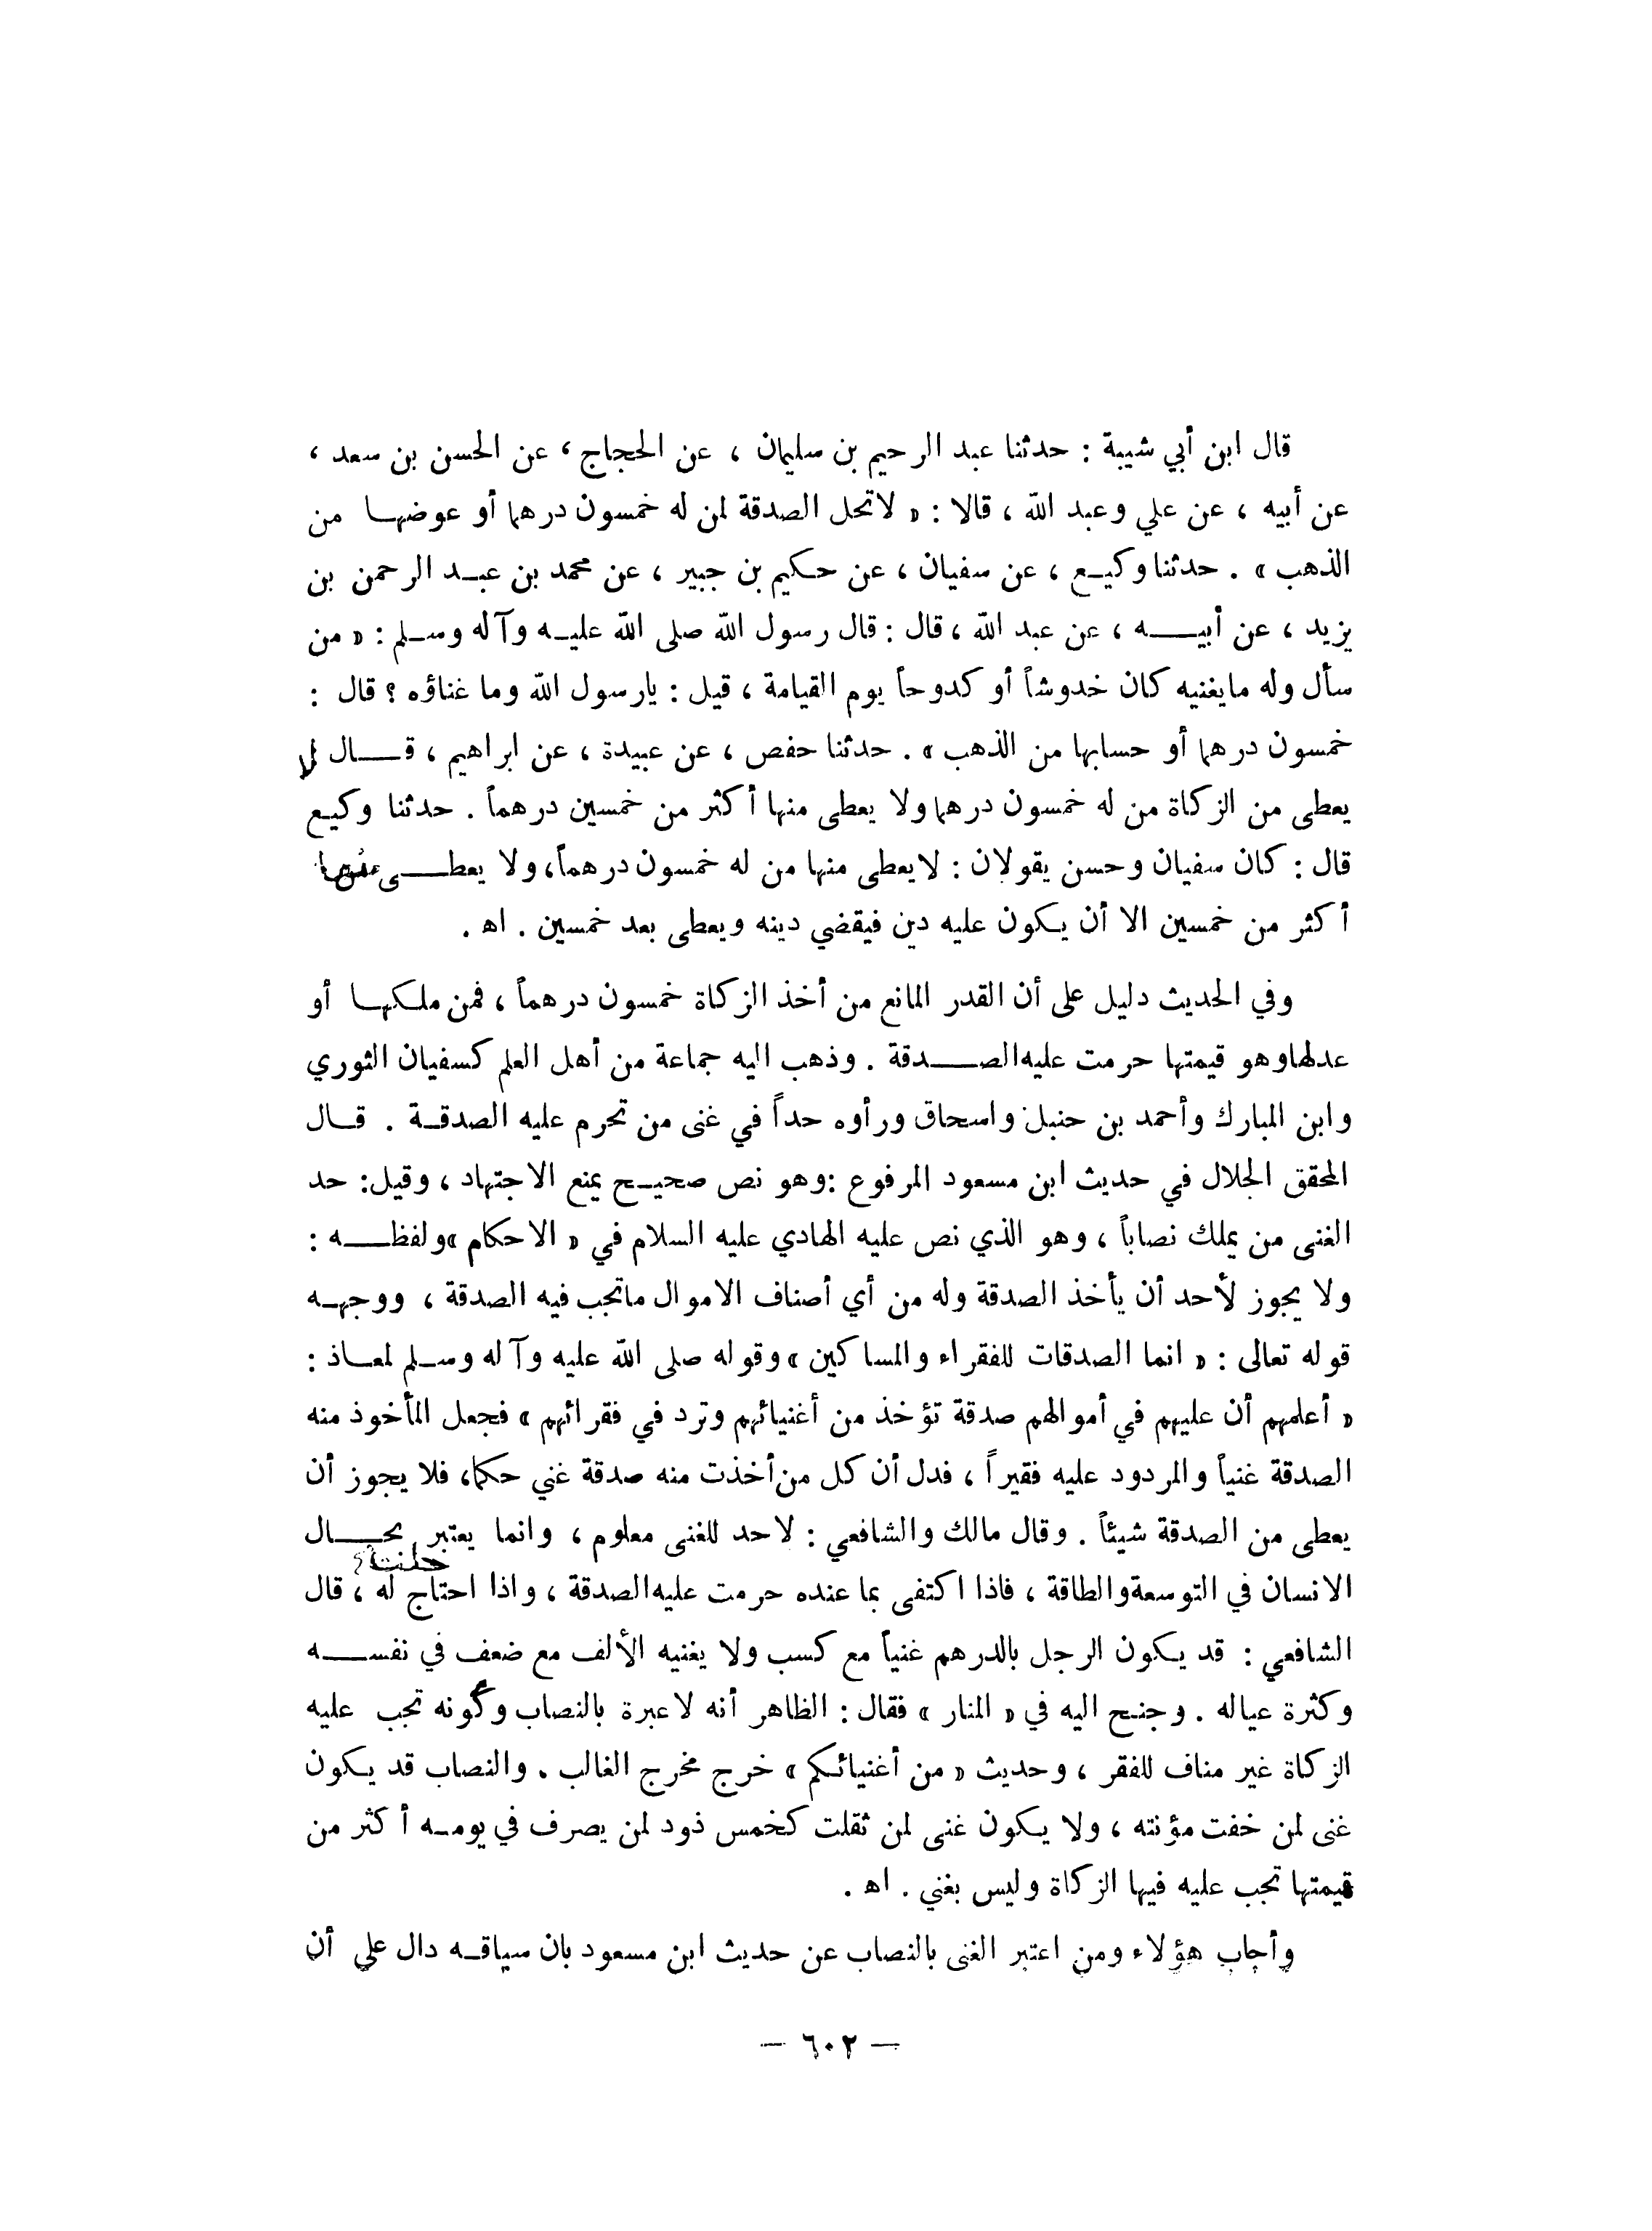 قال ابن أبي شيبة : حدثنا عبد الرحيم بن سليمان ، عن الحجاج ، عن الحسن بن سعد ،
عن أبيه ، عن علي وعبد الله ، قالا : « لاتحل الصدقة لمن له خمسون درهما أو عوضها من
الذهب » . حدثنا وكيع ، عن سفيان ، عن حكيم بن جبير ، عن محمد بن عبد الرحمن بن
يزيد ، عن أبيه ، عن عبد الله ، قال : قال رسول الله صلى الله عليه وآله وسلم : « من
سأل وله مايغنيه كان خدوشاً أو كدوحاً يوم القيامة ، قيل : يارسول الله وما غناؤه ؟ قال :
خمسون درهما أو حسابها من الذهب » . حدثنا حفص ، عن عبيدة ، عن ابراهيم ، قال لا
يعطى من الزكاة من له خمسون درهما ولا يعطى منها أكثر من خمسين درهماً . حدثنا وكيع
قال : كان سفيان وحسن يقولان : لايعطى منها من له خمسون درهماً، ولا يعطى منها
أكثر من خمسين الا أن يكون عليه دين فيقضي دينه ويعطى بعد خمسين . اه .
وفي الحديث دليل على أن القدر المانع من أخذ الزكاة خمسون درهماً ، فمن ملكها أو
عدلها وهو قيمتها حرمت عليه الصدقة . وذهب اليه جماعة من أهل العلم كسفيان الثوري
وابن المبارك وأحمد بن حنبل واسحاق ورأوه حداً في غنى من تحرم عليه الصدقة . قال
المحقق الجلال في حديث ابن مسعود المرفوع : وهو نص صحيح يمنع الاجتهاد ، وقيل : حد
الغنى من يملك نصاباً ، وهو الذي نص عليه الهادي عليه السلام في « الاحكام » ولفظه :
ولا يجوز لأحد أن يأخذ الصدقة وله من أي أصناف الاموال ماتجب فيه الصدقة ، ووجهه
قوله تعالى : « انما الصدقات للفقراء والمساكين » وقوله صلى الله عليه وآله وسلم لمعاذ :
« أعلمهم أن عليهم في أموالهم صدقة تؤخذ من أغنيائهم وترد في فقرائهم » فجعل المأخوذ منه
الصدقة غنياً والمردود عليه فقيراً ، فدل أن كل من أخذت منه صدقة غني حكما، فلا يجوز أن
يعطى من الصدقة شيئاً . وقال مالك والشافعي : لاحد للغنى معلوم ، وانما يعتبر بحال
الانسان في التوسعة والطاقة ، فاذا اكتفى بما عنده حرمت عليه الصدقة ، واذا احتاج حلت له ، قال
الشافعي : قد يكون الرجل بالدرهم غنياً مع كسب ولا يغنيه الألف مع ضعف في نفسه
وكثرة عياله . وجنح اليه في « المنار » فقال : الظاهر أنه لاعبرة بالنصاب وكونه تجب عليه
الزكاة غير مناف للفقر ، وحديث « من أغنيائكم » خرج مخرج الغالب . والنصاب قد يكون
غنى لمن خفت مؤنته ، ولا يكون غنى لمن ثقلت كخمس ذود لمن يصرف في يومه أكثر من
قيمتها تجب عليه فيها الزكاة وليس بغني . اه .
وأجاب هؤلاء ومن اعتبر الغنى بالنصاب عن حديث ابن مسعود بان سياقه دال على أن
— ٦٠٢ —